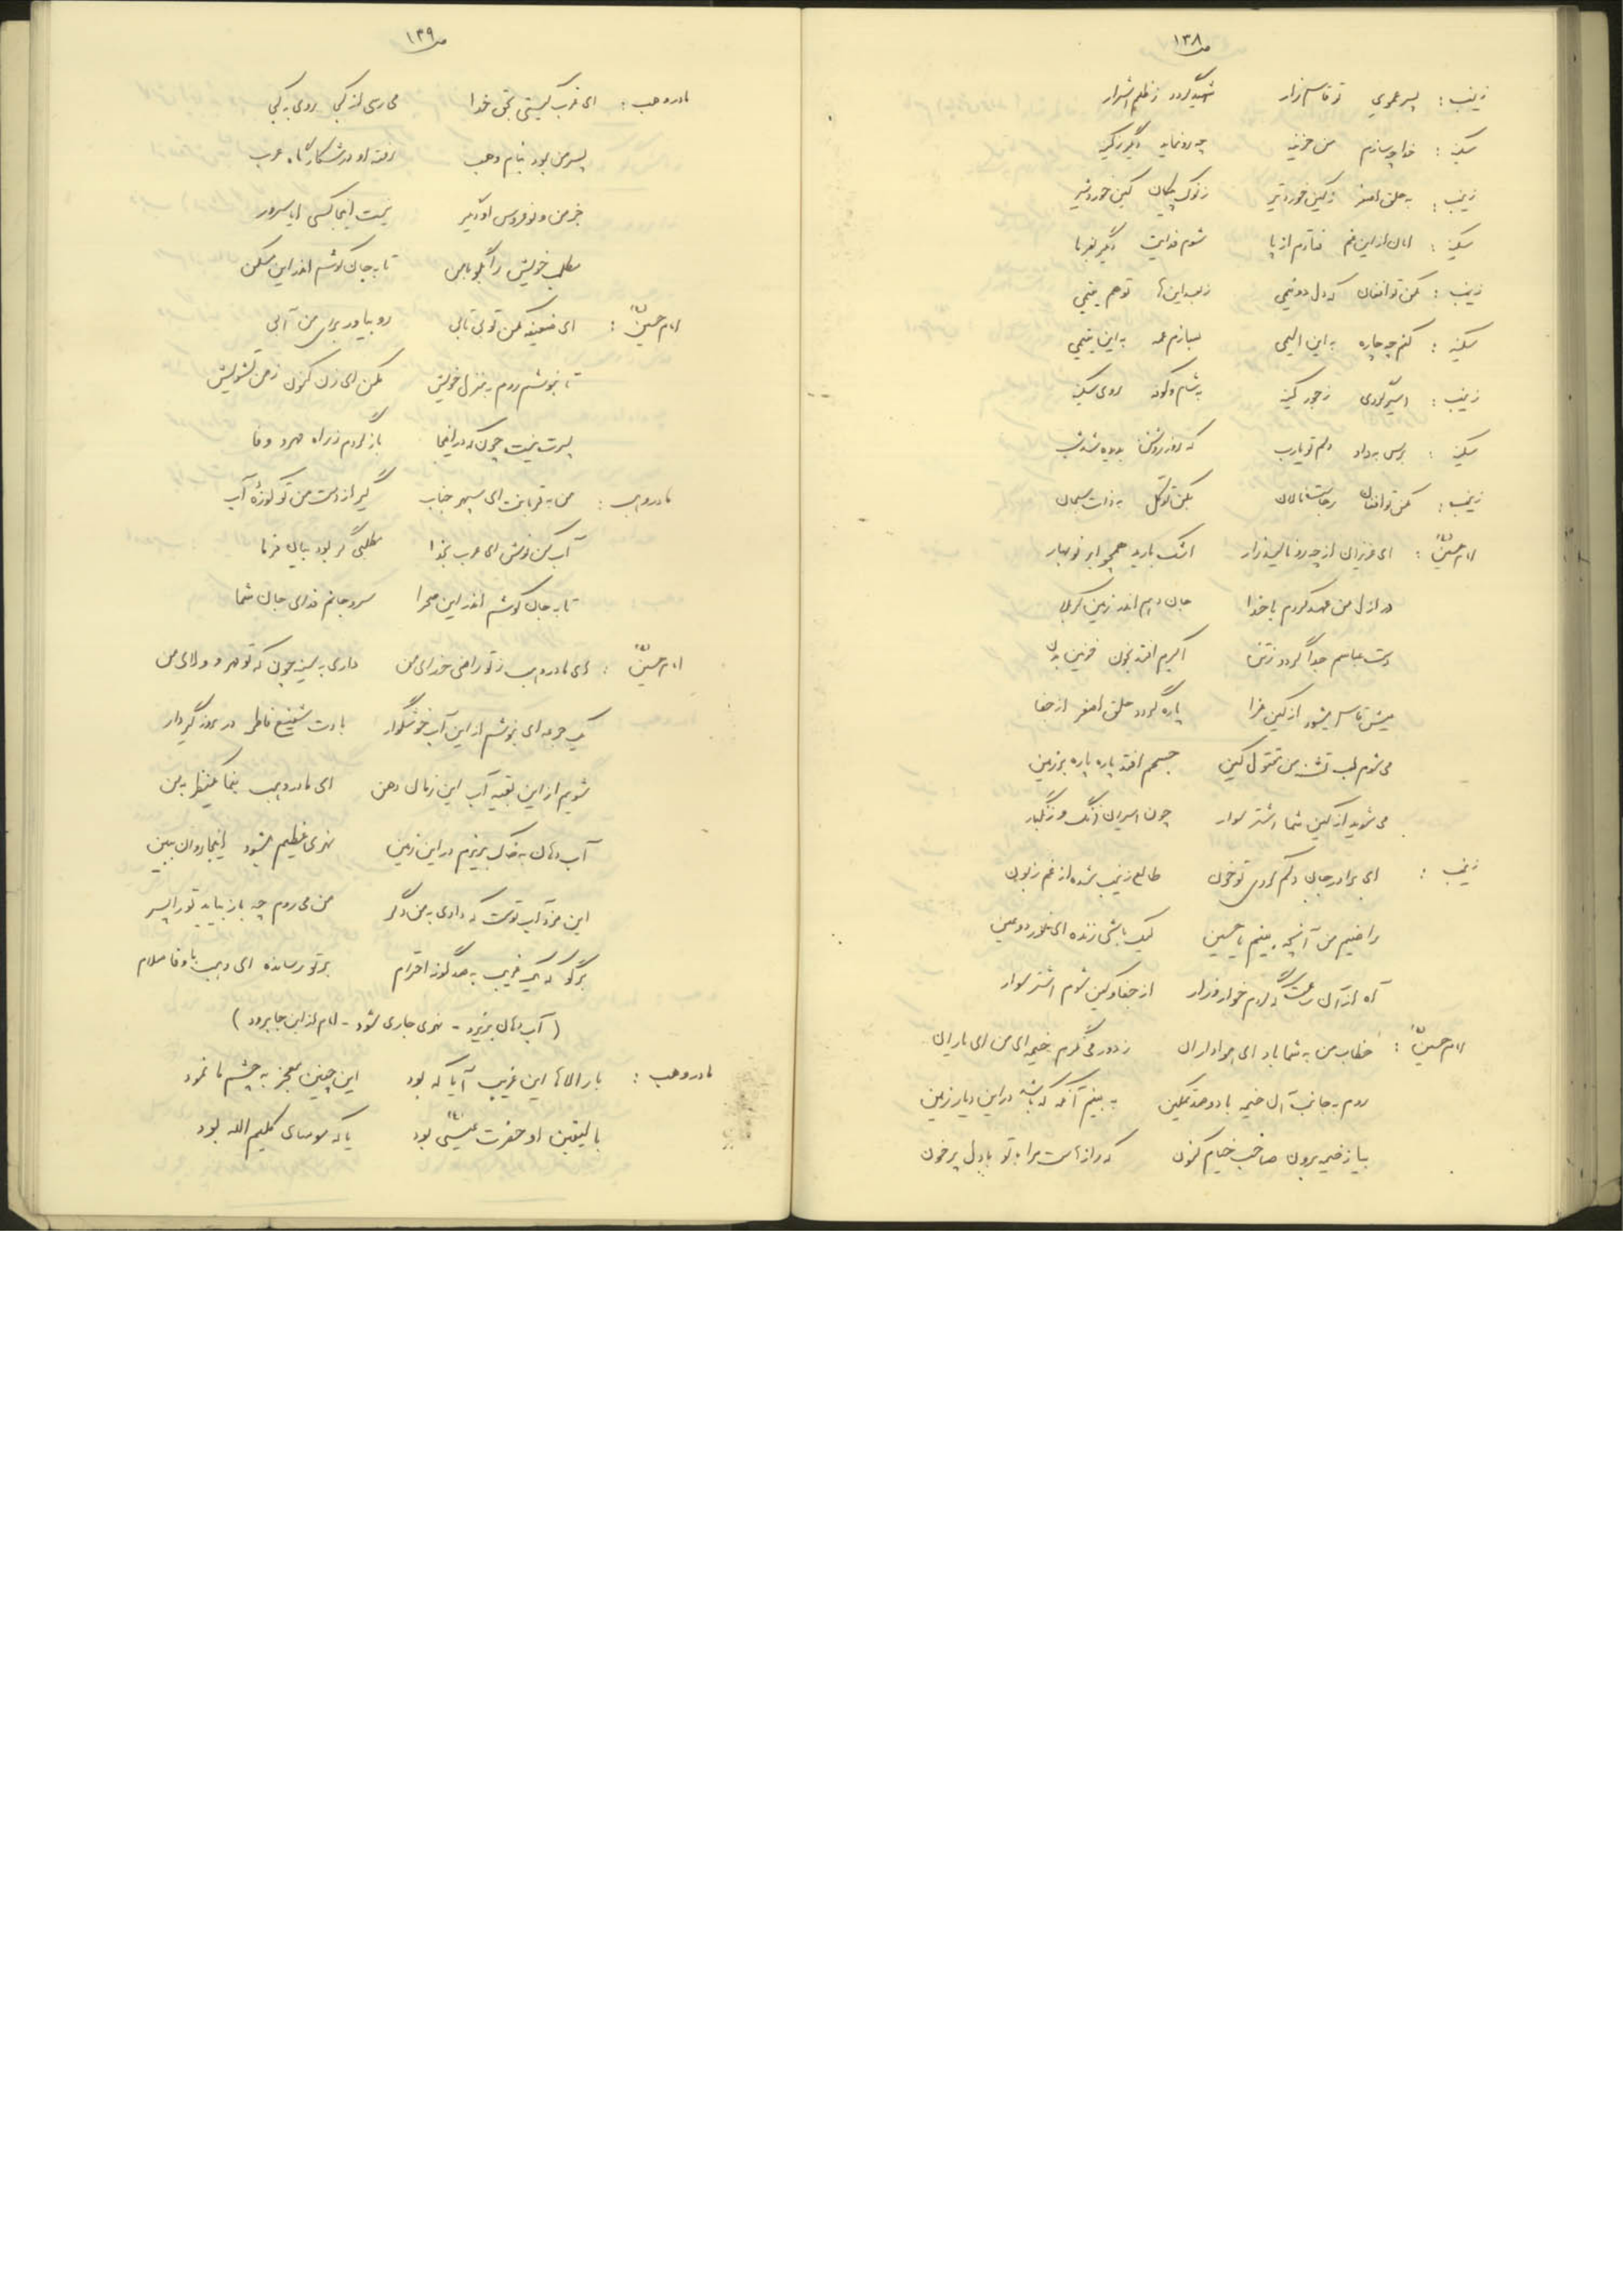 ص ۱۳۸
زینب : پسر عموی تو قاسم زار شهید گردد ز ظلم اشرار
سکینه : خدا چه سازم من حزینه چه رو نماید دگر ز کینه
زینب : به حلق اصغر ز کین خورد تیر ز نوک پیکان کین خورد شیر
سکینه : امان از این غم فتادم از پا شوم فدایت دگر بفرما
زینب : مکن تو افغان که دل دو نیمی ز بعد اینها تو هم یتیمی
سکینه : کنم چه چاره به این الیمی بسازم عمه به این یتیمی
زینب : اسیر گردی ز جور کینه به شام و کوفه روی سکینه
سکینه : برس به داد دلم تو یارب که روز روشن بدیده شد شب
زینب : مکن تو افغان ز جان نالان بکن توکل به ذات سبحان
امام حسین : ای عزیزان از چه رو نالید زار اشک بارید همچو ابر نوبهار
در ازل من عهد کردم با خدا جان دهم اندر زمین کربلا
دست عباسم جدا گردد ز تن اکبرم افتد بخون
عیش قاسم میشود از کین عزا پاره گردد حلق اصغر از جفا
می شوم لب تشنه من مقتول کین جسمم افتد پاره پاره بر زمین
می شوید از کین شما اشتر سوار چون اسیران فرنگ و زنگبار
زینب : ای برادر جان دلم کردی تو خون طالع زینب شده از غم زبون
راضیم من آنچه بینم یا حسین لیک باشی زنده ای نور دو عین
آه از آن ساعت که گردم خوار و زار از جفا و کین شوم اشتر سوار
امام حسین : خطاب من به شما باد ای هواداران ز دور می نگرم خیمه ای من ای یاران
روم به جانب آن خیمه با دو صد تمکین به بینم آنکه که باشد در این دیار زمین
بیا ز خیمه برون صاحب خیام کنون که راز است مرا با تو با دل پر خون
ص ۱۳۹
مادر وهب : ای عرب کیستی بحق خدا می رسی از کجا روی به کجا
پسر من بود بنام وهب رفته او در شکارگاه عرب
جز من و نو عروس او دیگر نیست اینجا کسی ایا سرور
مطلب خویش را بگو با من تا به جان کوشم اندر این مسکن
امام حسین : ای ضعیفه مکن تو بی تابی رو بیاور برای من آبی
تا بنوشم روم به منزل خویش مکن ای زن کنون ز من تشویش
پسرت نیست چون که در اینجا باز گردم ز راه مهر و وفا
مادر وهب : من به قربانت ای سپهر جناب گیر از دست من تو کوزهٔ آب
آب کن نوش ای عرب بخدا مطلبی گر بود بیان فرما
تا به جان کوشم اندر این صحرا سر و جانم فدای جان شما
امام حسین : ای مادر وهب ز تو راضی خدای من داری به سینه چون که تو مهر و ولای من
یک جرعه ای بنوشم از این آب خوشگوار بادت شفیع فاطمه در روز گیر و دار
شویم از این بقیه آب این زمان دهن ای مادر وهب بنما یک نظر به من
آب دهان به خاک بریزم در این زمین نهری عظیم میشود اینجا روان ببین
این مزد آب توست که دادی به من دگر من می روم چه باز بیاید تو را پسر
برگو که یک غریب به صد گونه احترام بر تو رسانده ای وهب با وفا سلام
( آب دهان بریزد - نهری جاری شود - امام از این جا برود )
مادر وهب : بار الاها این غریب آیا که بود این چنین معجز به چشم ما نمود
با لیقین او حضرت عیسی بود یا که موسای کلیم الله بود